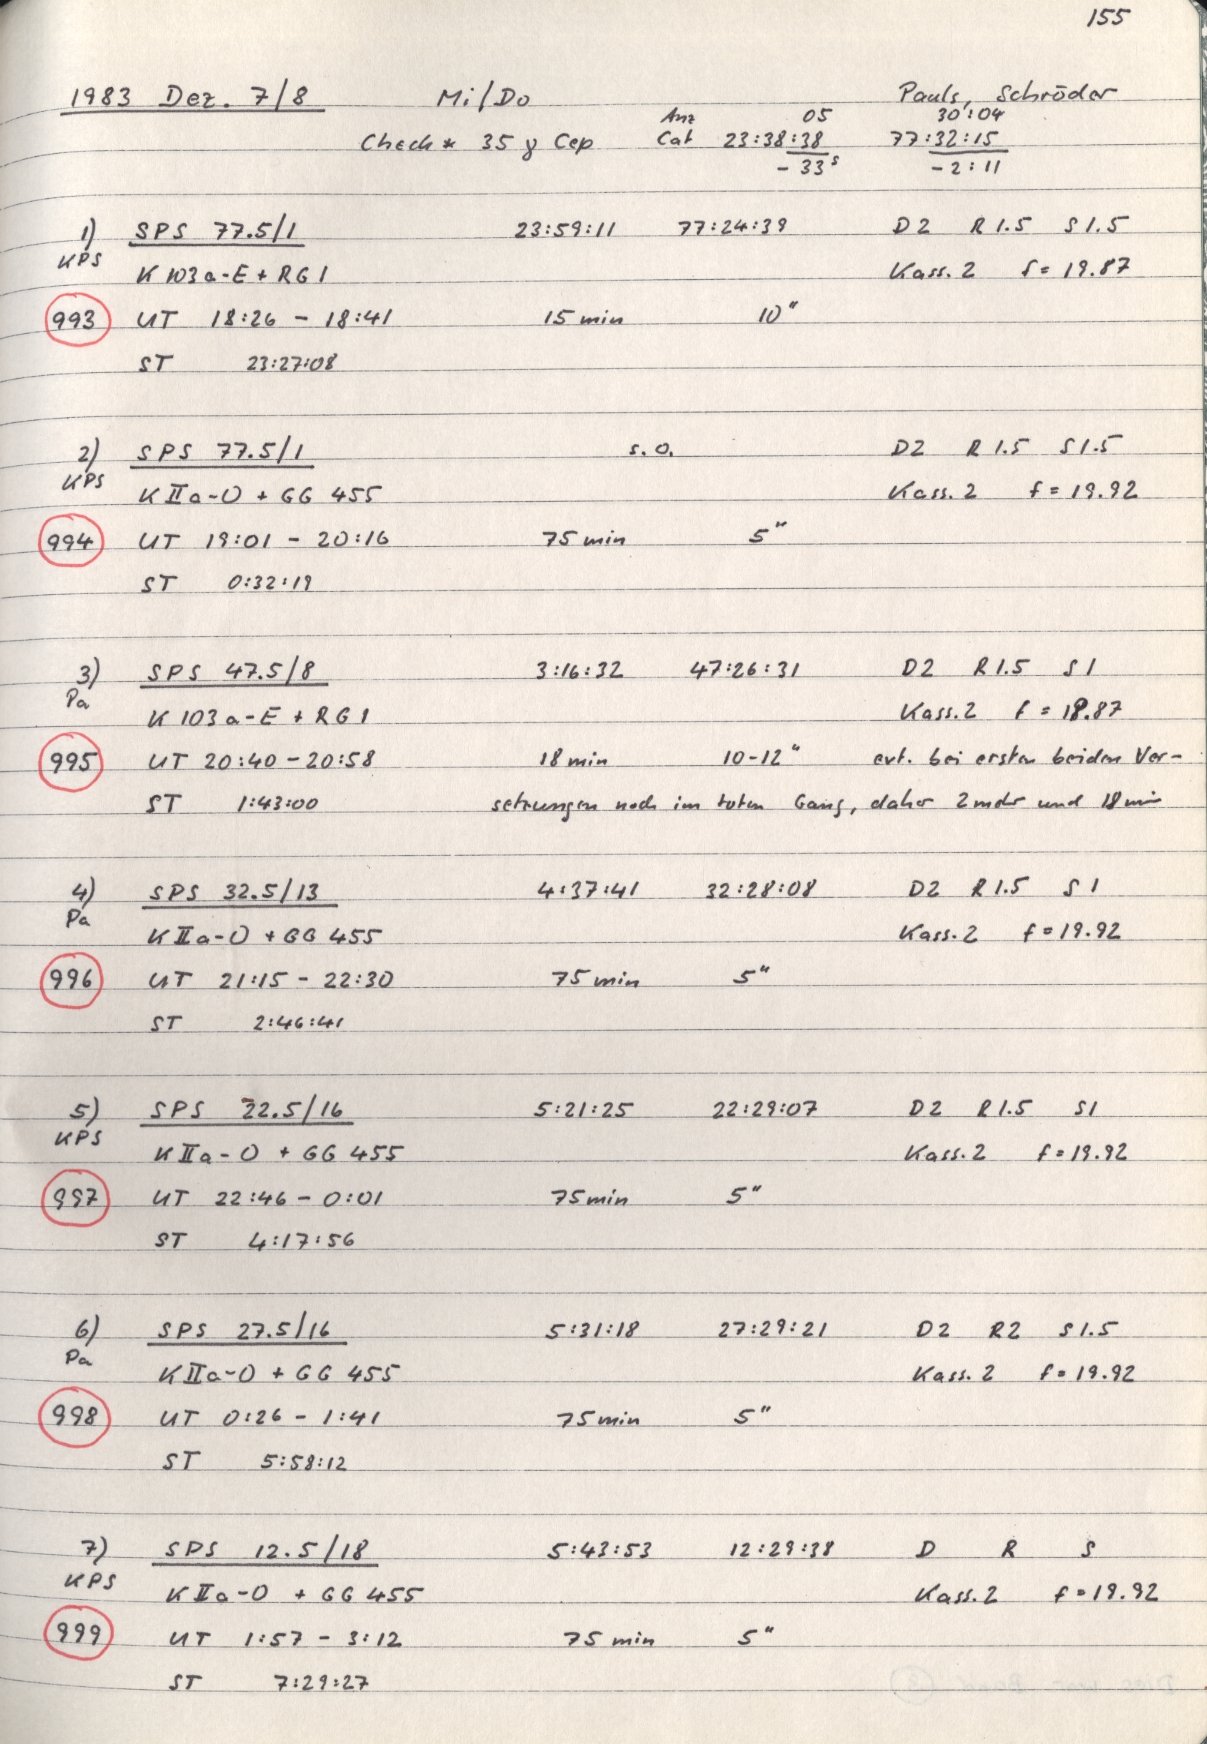 155
1983 Dez. 7/8 Mi/Do Pauls, Schröder
Anz 05 30:04
Check * 35 γ Cep Cat 23:38:38 77:32:15
- 33s - 2:11
1) SPS 77.5/1 23:59:11 77:24:39 D2 R 1.5 S 1.5
KPS K 103a-E + RG1 Kass. 2 f = 19.87
993 UT 18:26 - 18:41 15 min 10"
ST 23:27:08
2) SPS 77.5/1 s.o. D2 R 1.5 S 1.5
KPS K IIa-O + GG 455 Kass. 2 f = 19.92
994 UT 19:01 - 20:16 75 min 5"
ST 0:32:19
3) SPS 47.5/8 3:16:32 47:26:31 D2 R 1.5 S 1
Pa K 103a-E + RG1 Kass. 2 f = 18.87
995 UT 20:40 - 20:58 18 min 10-12" evt. bei ersten beiden Ver-
ST 1:43:00 setzungen noch im toten Gang, daher 2mdr und 18 min
4) SPS 32.5/13 4:37:41 32:28:08 D2 R 1.5 S 1
Pa K IIa-O + GG 455 Kass. 2 f = 19.92
996 UT 21:15 - 22:30 75 min 5"
ST 2:46:41
5) SPS 22.5/16 5:21:25 22:29:07 D2 R 1.5 S1
KPS K IIa-O + GG 455 Kass. 2 f = 19.92
997 UT 22:46 - 0:01 75 min 5"
ST 4:17:56
6) SPS 27.5/16 5:31:18 27:29:21 D2 R2 S 1.5
Pa K IIa-O + GG 455 Kass. 2 f = 19.92
998 UT 0:26 - 1:41 75 min 5"
ST 5:58:12
7) SPS 12.5/18 5:43:53 12:29:38 D R S
KPS K IIa-O + GG 455 Kass. 2 f = 19.92
999 UT 1:57 - 3:12 75 min 5"
ST 7:29:27